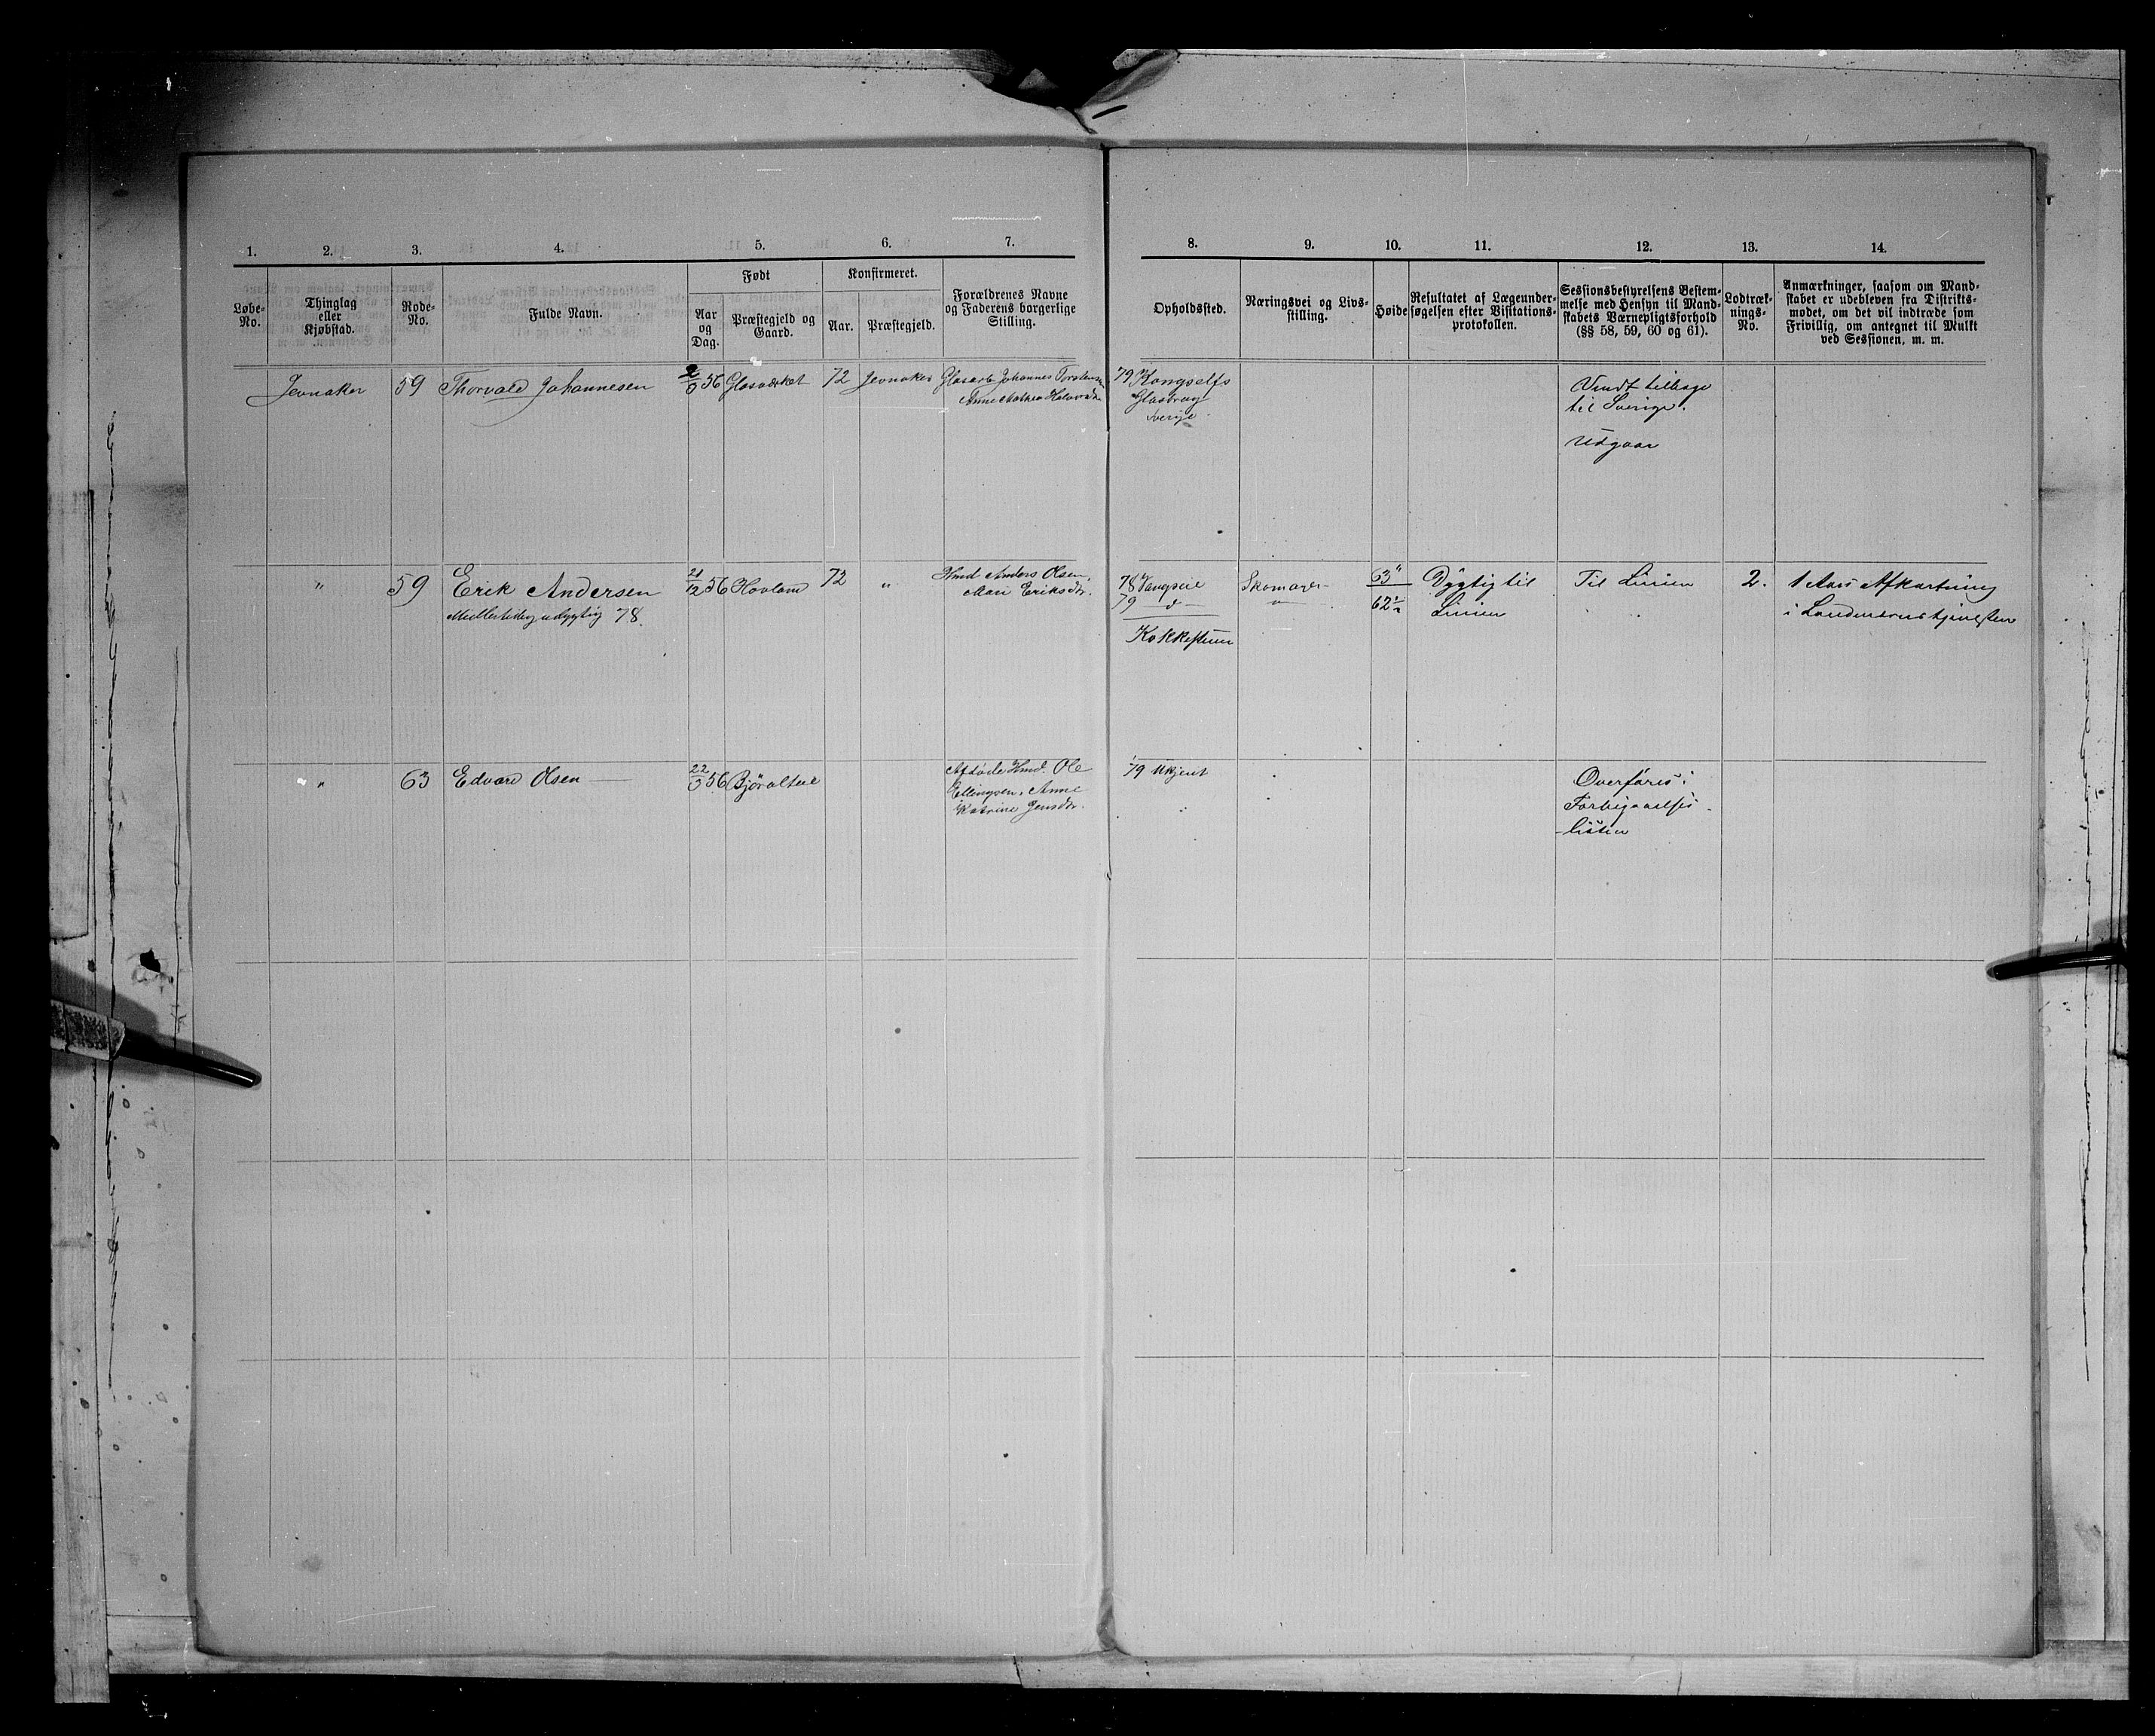 1. 2. 3. 4. 5. 6. 7. 8. 9. 10. 11. 12. 13. 14.
Løbe-
No.
Thinglag
eller
Kjøbstad.
Rode-
No.
Fulde Navn.
Født
Aar
og
Dag.
Præstegjeld og
Gaard.
Konfirmeret.
Aar.
Præstegjeld.
Forældrenes Navne
og Faderens borgerlige
Stilling.
Opholdssted.
Næringsvei og Livs-
stilling.
Høide
Resultatet af Lægeunder-
søgelsen efter Visitations-
protokollen.
Sessionsbestyrelsens Bestem-
melse med Hensyn til Mand-
skabets Værnepligtsforhold
(§§ 58, 59, 60 og 61).
Lodtræk-
nings-
No.
Anmærkninger, saasom om Mand-
skabet er udebleven fra Distrikts-
modet, om det vil indtræde som
Frivillig, om antegnet til Mulkt
ved Sessionen, m. m.
Jevnaker 59 Thorvald Johannesen 56 Glasværket 72 Jevnaker Glasarb. Johannes Torstensen
Anne Mathea Halvorsdr.
79 Kongselfs
Glasbrug
Sverige
Vendt tilbage
til Sverige.
Udgaar
" 59 Erik Andersen 21/12 56 Hovland 72 " Hmd Anders Olsen,
Mari Eriksdr.
Midlertidig udygtig 78.
78 Vangseie Skomager 63" Dygtig til Til Linien 2. 1 Aars Afkortning
79 —d— 62 Linien i Landeværnstjenesten
Kokkestuen
" 63 Edvard Olsen 56 Bjøralteie
Afdøde Hmd. Ole
Ellingsen, Anne
Katrine Jensdr.
79 Ukjent
Overføres i
Forbigaaelses-
listen